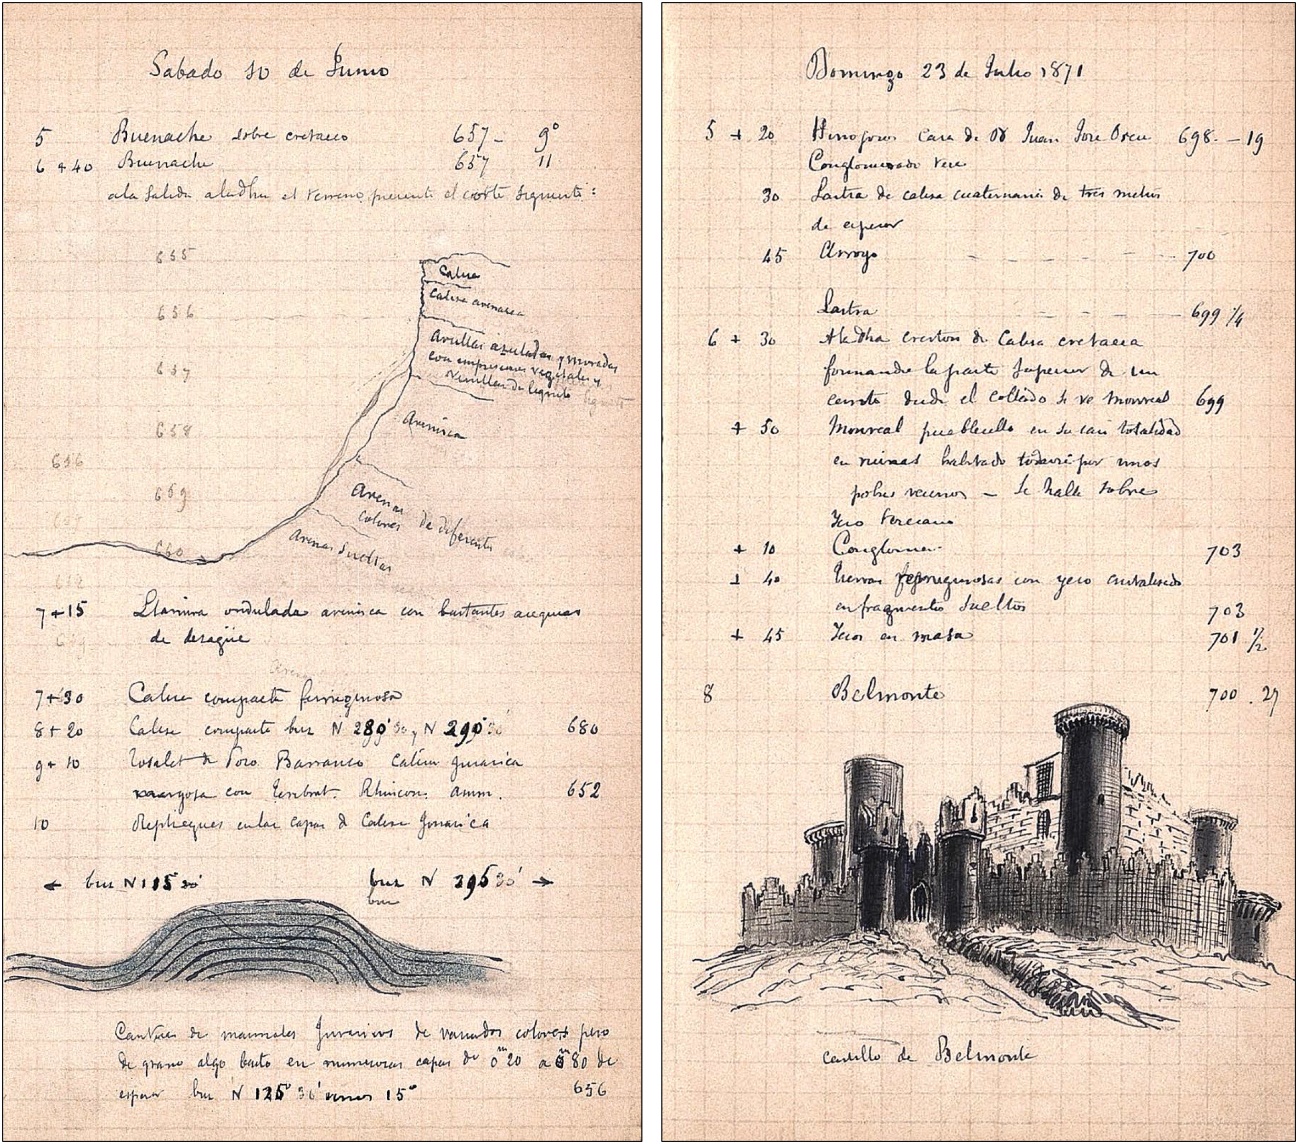 Sabado 10 de Junio
5 Buenache sobre cretaceo 657 - 9°
6 + 40 Buenache 657 11
ala salida aladha el terreno presenta el corte siguiente:
655
656
657
658
656
659
660
Caliza
Caliza arenacea
Arcillas azuladas y moradas
con impresiones vegetales y
venillas de lignito
Arenisca
Arenas de diferentes
colores
Arenas sueltas
7+15 Llanura ondulada arenisca con bastantes acequias
de desagüe
7+30 Caliza compacta ferruginosa
8+20 Caliza compacta buz N 280° 30' y N 290° 30' 680
9+10 de Poro Barranco Caliza jurasica
margosa con Terebrat. Rhincon. amm. 652
10 Repliegues en las capas de Caliza Jurasica
← buz N 115 30' buz N 295 30' →
buz
Cantera de marmoles Jurasicos de variados colores pero
de grano algo basto en numerosas capas de 0m 20 a 0m 80 de
espesor buz N 125° 30' unos 15° 656
Domingo 23 de Julio 1871
5 + 20 Hinojosos Casa de Dn Juan Jose 698. - 19
Conglomerado
30 Lastra de caliza cuaternaria de tres metros
de espesor
45 Arroyo 700
Lastra 699 1/4
6 + 30 Aladha creston de Caliza cretacea
formando la parte superior de un
cerrito desde el collado se ve Monreal 699
+ 50 Monreal pueblecillo en su casi totalidad
en ruinas habitado todavia por unos
pobres vecinos - Se halla sobre
Yeso terciario
+ 10 Conglomer. 703
+ 40 tierras ferruginosas con yeso cristalizado
en fragmentos sueltos 703
+ 45 Yesos en masa 701 1/2
8 Belmonte 700 . 27
castillo de Belmonte